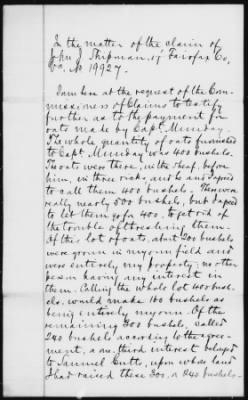 In the matter of the claim of
John J. Shipman, of Fairfax Co,
Va. No 19927.
I am here at the request of the Com-
missioners of Claims to testify
further as to the payment for
oats made by Capt. Munday.
The whole quantity of oats furnished
to Capt Munday was 400 bushels.
The oats were there, in the sheaf, before
him, in three ricks, and he and I agreed
to call them 400 bushels. There were
really nearly 500 bushels, but I agreed
to let them go for 400, to get rid of
the trouble of threshing them.
Of this lot of oats, about 200 bushels
were grown in my own field and
were entirely my property, no other
person having any interest in
them. Calling the whole lot 400 bush-
els, would make 160 bushels as
being entirely my own. Of the
remaining 300 bushels, called
240 bushels according to the agree-
ment, a one third interest belonged
to Samuel Cutts, upon whose land
I had raised these 300, or 240 bushels.